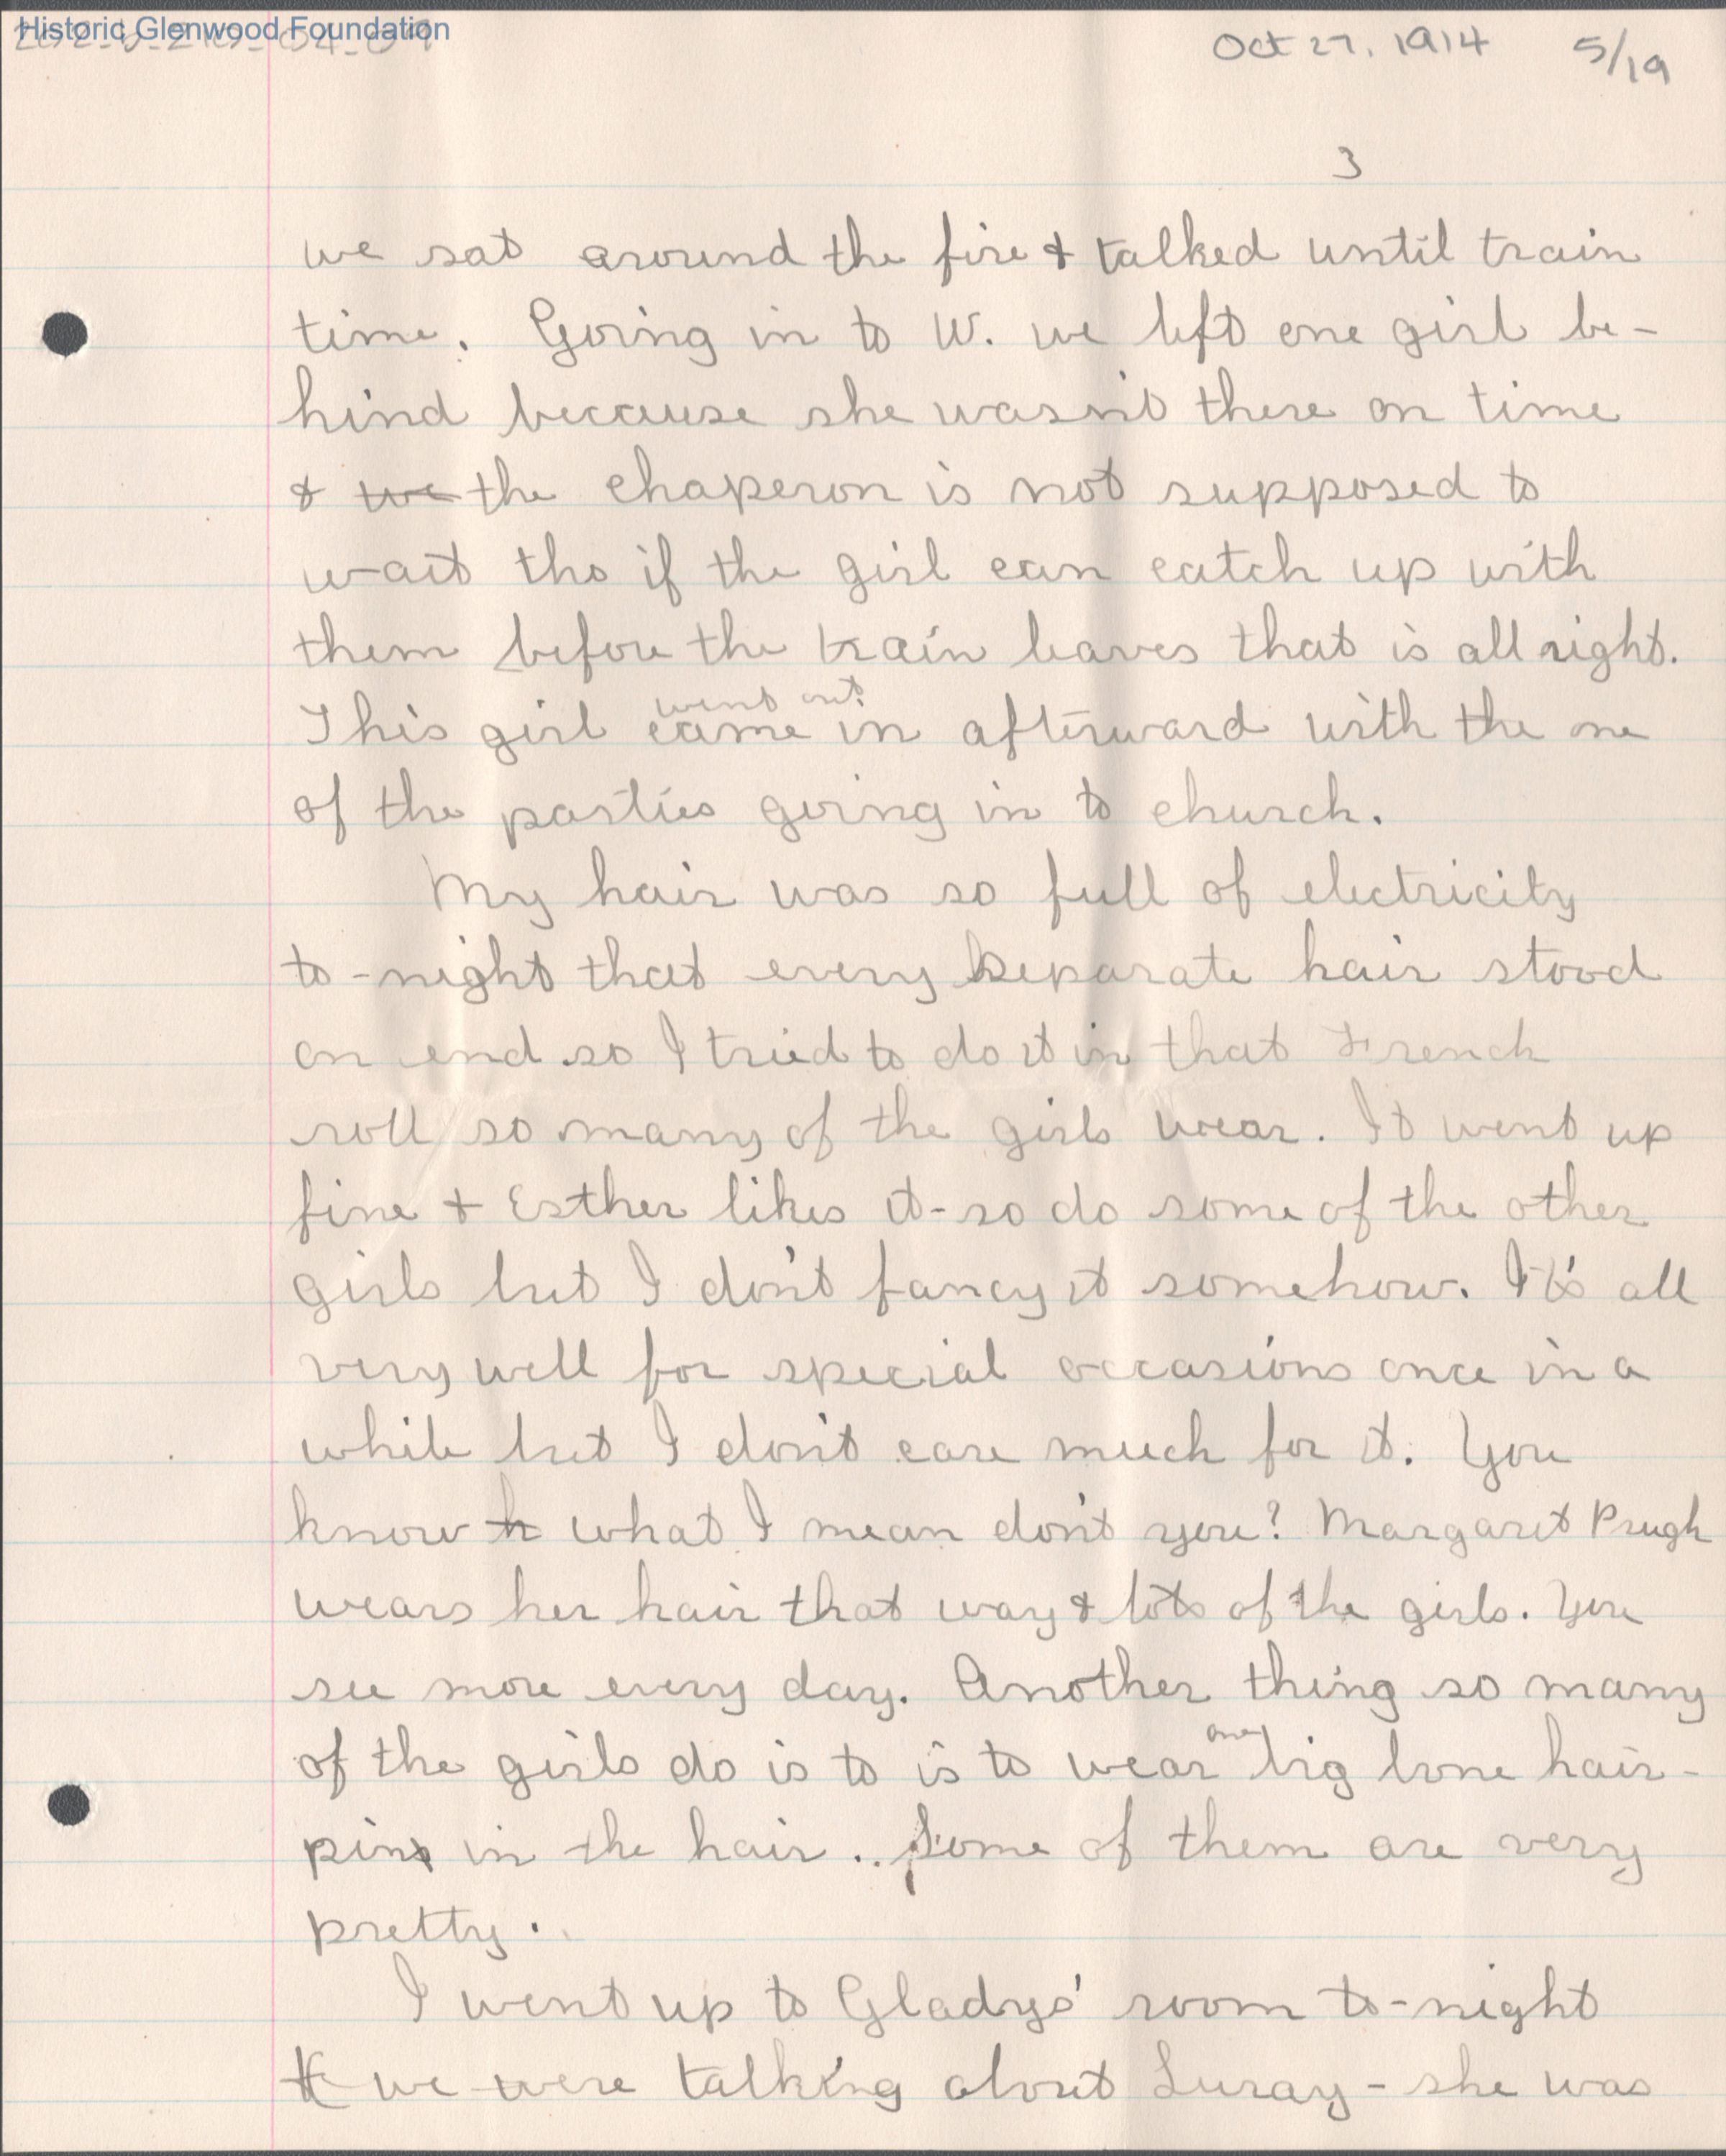 Historic Glenwood Foundation
Oct 27, 1914 5/19
3
we sat around the fire & talked until train
time. Going in to W. we left one girl be-
hind because she wasn't there on time
& we the chaperon is not supposed to
wait tho if the girl can catch up with
them before the train leaves that is all right.
went out
This girl came in afterward with the one
of the parties going in to church.
My hair was so full of electricity
to-night that every separate hair stood
on end so I tried to do it in that French
roll so many of the girls wear. It went up
fine & Esther likes it - so do some of the other
girls but I don't fancy it somehow. It's all
very well for special occasions once in a
while but I don't care much for it. You
know h what I mean don't you? Margaret Prugh
wears her hair that way & lots of the girls. You
see more every day. Another thing so many
one
of the girls do is to is to wear big bone hair-
pins in the hair.. Some of them are very
pretty.
I went up to Gladys' room to-night
& we were talking about Luray - she was